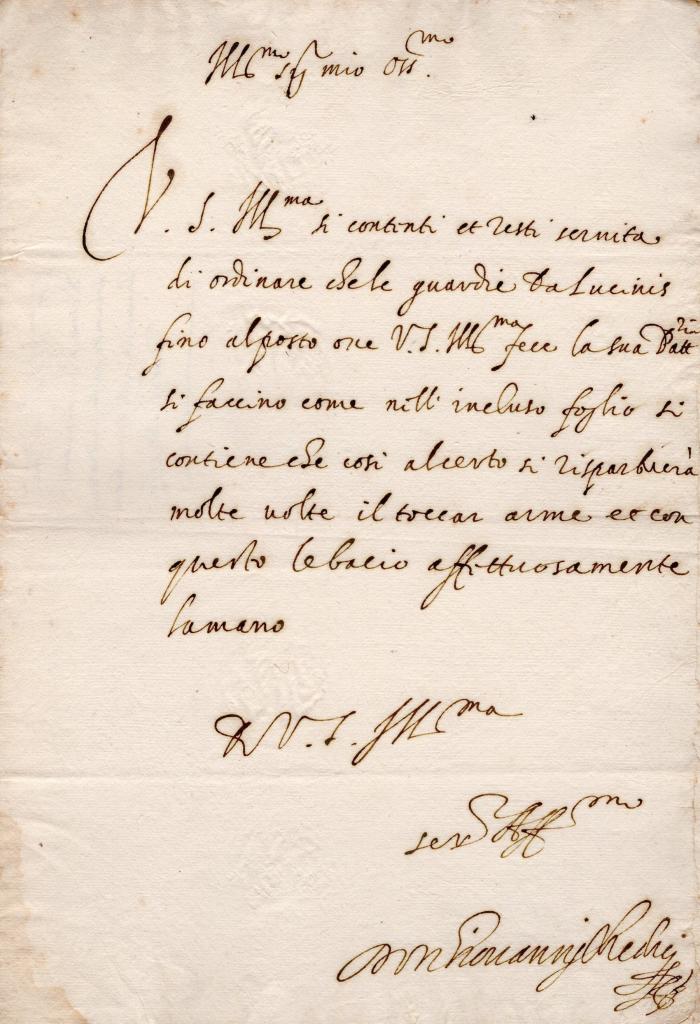 Ill^mo sig^r mio Oss^mo.
V. S. Ill^ma si contenti et resti seruita
di ordinare che le guardie da Lucinis
fino al posto oue V. S. Ill^ma fece la sua Batt^ria
si faccino come nell' incluso foglio si
contiene che cosi al certo si risparbierà
molte uolte il toccar arme et con
questo le bacio affettuosamente
la mano
Di V. S. Ill^ma
ser^re Aff^mo
Don Giouannj Medicj